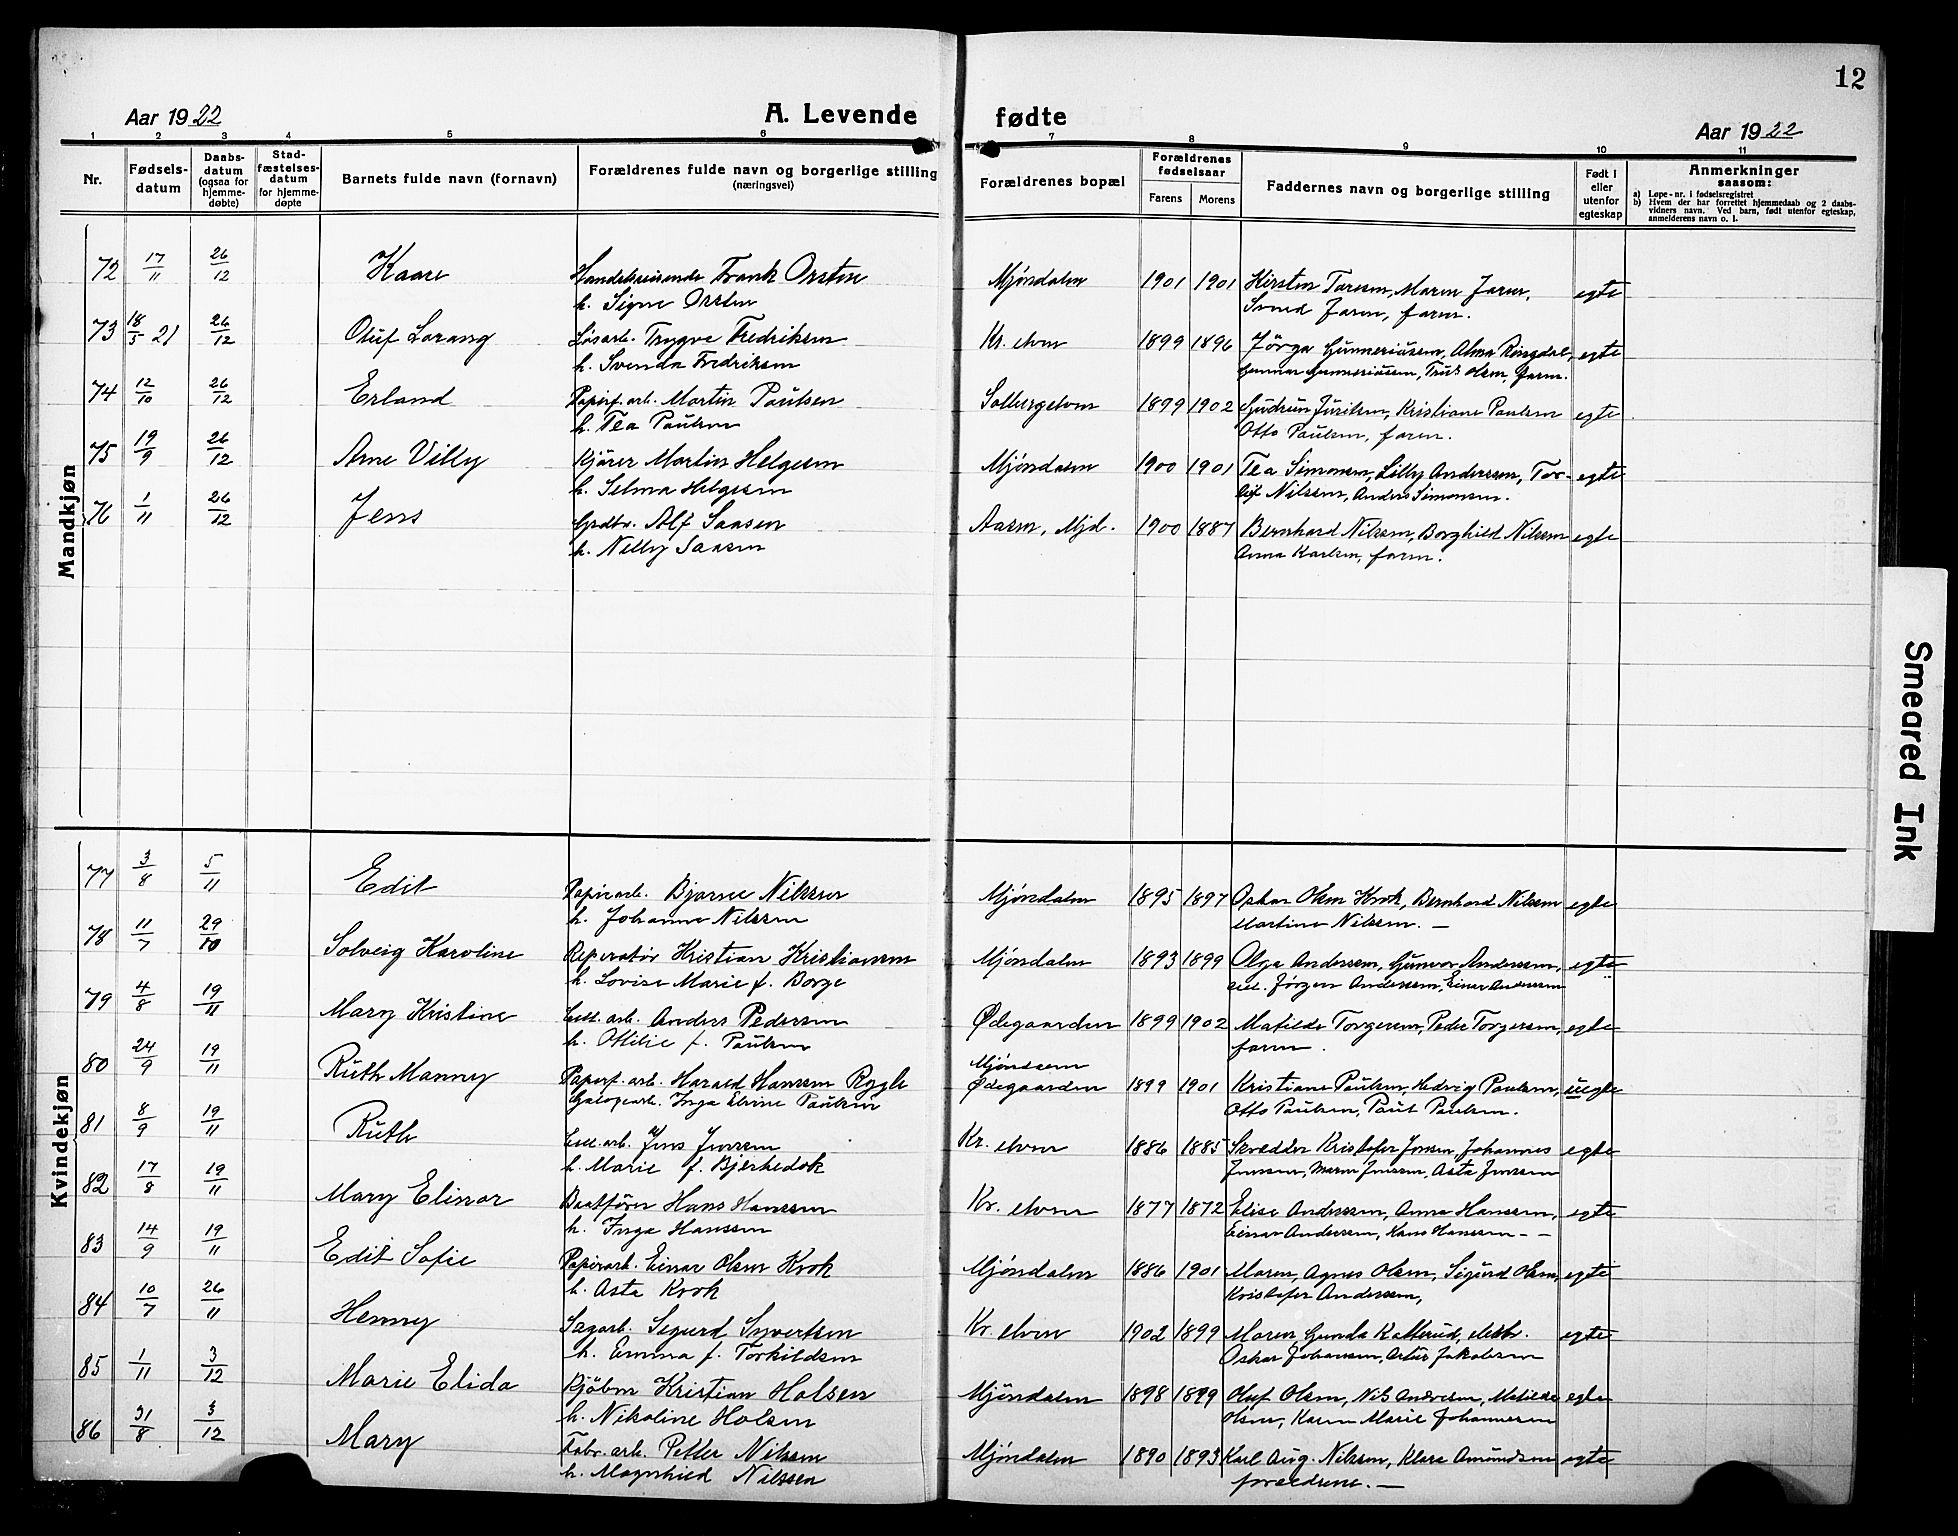 12
Aar 1922
A. Levende fødte
Aar 1922
1 2 3 4 5 6 7 8 9 10 11
Nr.
Fødsels-datum
Daabs-datum (ogsaa for hjemme-døbte)
Stad-fæstelses-datum for hjemme-døpte
Barnets fulde navn (fornavn)
Forældrenes fulde navn og borgerlige stilling (næringsvei)
Forældrenes bopæl
Forældrenes fødselsaar
Farens Morens
Faddernes navn og borgerlige stilling
Født i eller utenfor egteskap
Anmerkninger
saasom:
a) Løpe-nr. i fødselsregistret
b) Hvem der har forrettet hjemmedaab og 2 daabs-
vidners navn. Ved barn, født utenfor egteskap,
anmelderens navn o. l.
Mandkjøn
72 17/11 26/12 Kaare Handelsreisende Frank Orsten Mjøndalen 1901 1901 Kirsten Maren egte
h. Signe Orsten faren.
73 18/5 21 26/12 Oluf Lorang Løsarb. Trygve Fredriksen Kr. elven 1899 1896 Gunneriusen, Alma Ringdal, egte
h. Svenda Fredriksen Gunnar Gunneriusen, Olsen, faren.
74 12/10 26/12 Erland Papirf. arb. Martin Paulsen Solbergelven 1899 1902 Gudrun Kristiane Paulsen egte
h. Tea Paulsen Otto Paulsen, faren.
75 19/9 26/12 Arne Villy Kjører Martin Helgesen Mjøndalen 1900 1901 Tea Simonsen, Lilly Anderssen, Tor- egte
h. Selma Helgesen leif Nilssen, Anders Simonsen.
76 1/11 26/12 Jens Grdbr. Alf Saasen Aasen, Mjd. 1900 1887 Bernhard Nilssen, Borghild Nilssen egte
h. Nelly Saasen Anna Karlsen, faren.
Kvindekjøn
77 3/8 5/11 Edit Papirarb. Bjarne Nilssen Mjøndalen 1895 1897 Oskar Olsen Krok, Bernhard Nilssen egte
h. Johanne Nilssen Martine Nilssen. —
78 11/7 29/10 Solveig Karoline Reparatør Kristian Kristiansen Mjøndalen 1893 1899 Olga Anderssen, Gunvor Anderssen, egte
h. Lovise Marie f. Borge Jørgen Anderssen, Einar Anderssen
79 4/8 19/11 Mary Kristine Cell. arb. Anders Pedersen Ødegaarden 1899 1902 Matilde Torgersen, Peder Torgersen, egte
h. Otilie f. Paulsen faren.
80 24/9 19/11 Ruth Manny Papirf. arb. Harald Hanssen Rygh Ødegaarden 1899 1901 Kristiane Paulsen, Hedvig Paulsen, uegte
Inga Elvine Paulsen Otto Paulsen, Paul Paulsen.
81 8/9 19/11 Ruth Cell. arb. Jens Jenssen Kr. elven 1886 1885 Skredder Kristofer Jensen, Johannes egte
h. Marie f. Jenssen, Maren Jenssen, Asta Jenssen
82 17/8 19/11 Mary Elinor Baatfører Hans Hanssen Kr. elven 1877 1872 Elise Anderssen, Anna Hanssen, egte
h. Inga Hanssen Einar Anderssen, Hans Hanssen - -
83 14/9 19/11 Edit Sofie Papirarb. Einar Olsen Krok Mjøndalen 1886 1901 Moren, Agnes Olsen, Sigurd Olsen, egte
h. Asta Krok Kristofer Anderssen,
84 10/7 26/11 Henny Sagarb. Sigurd Syvertsen Kr. elven 1902 1899 Moren, Gunda Katterud, egte
h. Emma f. Torkildsen Oskar Johansen, Artur Jakobsen
85 1/11 3/12 Marie Elida Kjøbm Kristian Holsen Mjøndalen 1898 1899 Oluf Olsen, Nils Anderssen, Matilde egte
h. Nikoline Holsen Olsen, Karen Marie Johannesen
86 31/8 3/12 Mary Fabr. arb. Petter Nilssen Mjøndalen 1890 1893 Karl Aug. Nilssen, Klara Amundsen egte
h. Magnhild Nilssen forældrene. —
Smeared Ink